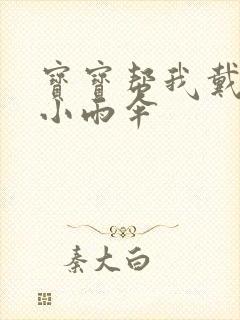 寶寶帮我戴
小雨伞
秦大白